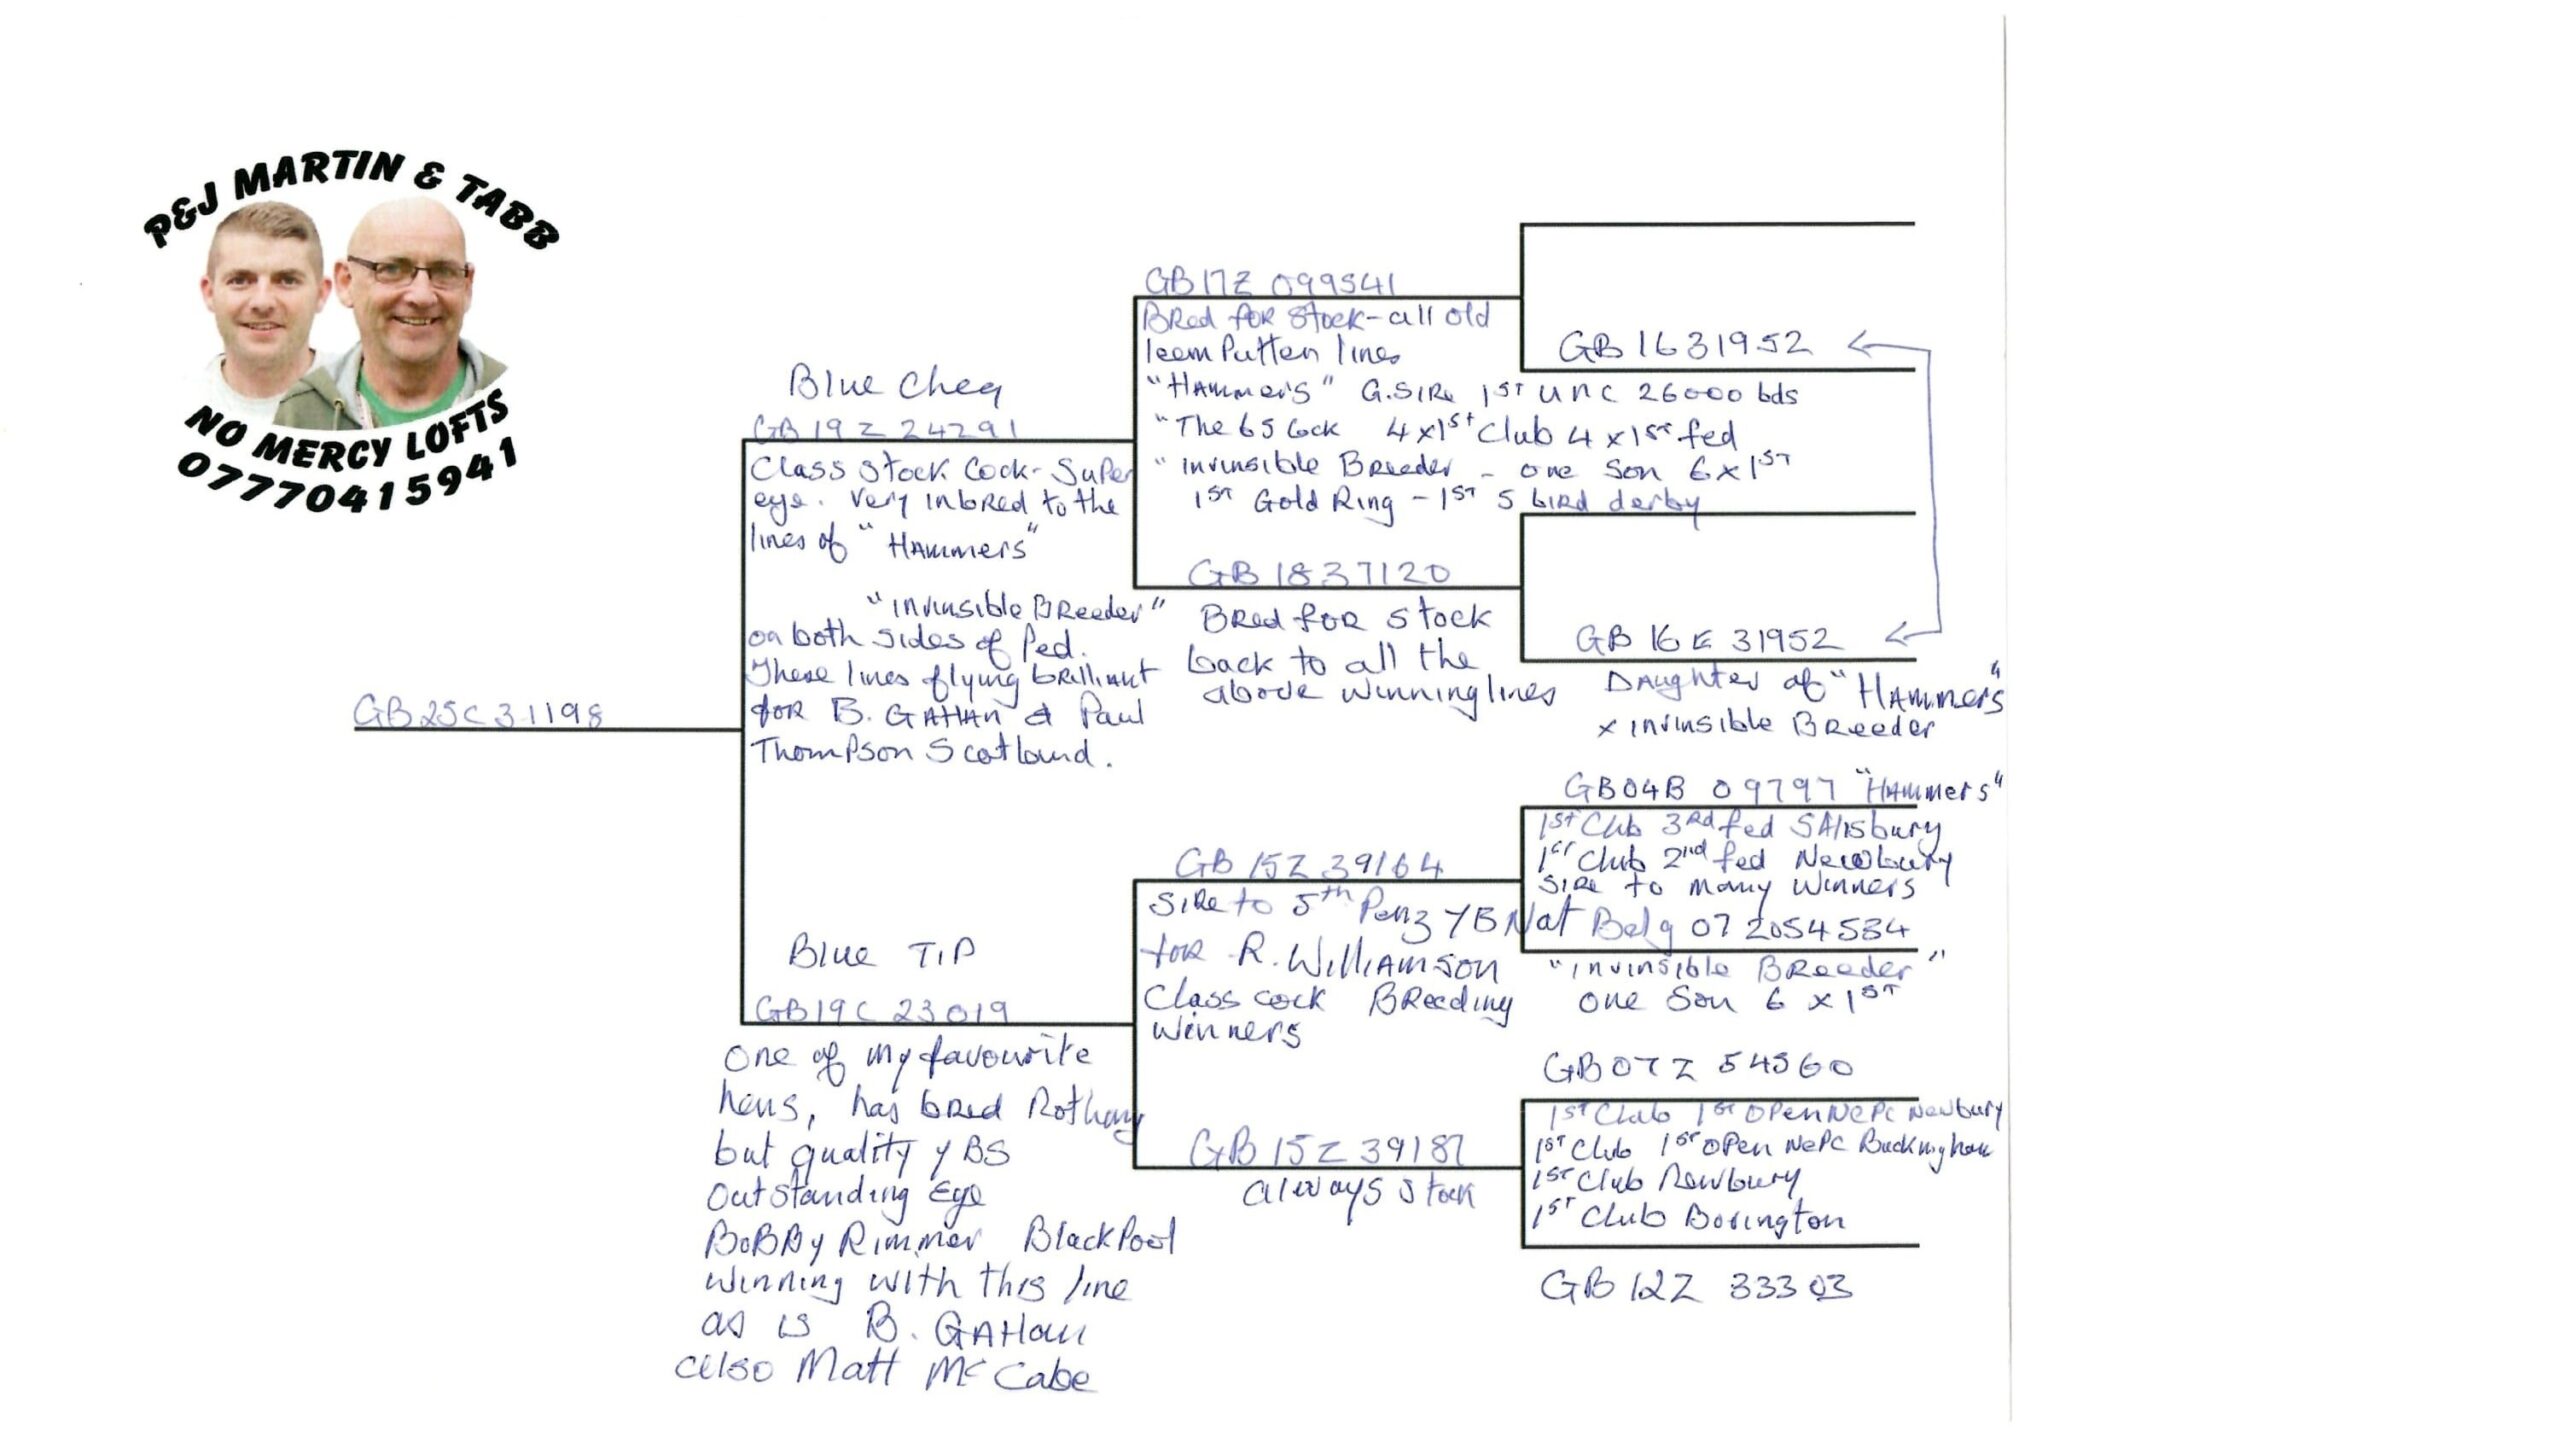 P&J MARTIN & TABB
NO MERCY LOFTS
07770415941
GB25C31198
Blue Cheq
GB 19 Z 24291
Class Stock Cock - Super
eye. Very inbred to the
lines of "Hammers"
"Invinsible Breeder"
on both sides of Ped.
These lines flying brilliant
for B. GAHAN & Paul
Thompson Scotland.
Blue Tip
GB19C 23019
One of my favourite
hens, has bred Nothing
but quality YBS
Outstanding Eye
BoBBy Rimmer BlackPool
winning with this line
as is B. GAHan
also Matt McCabe
GB17Z 099541
Bred for Stock - all old
leem Putten lines
"Hammers" G.Sire 1st UNC 26000 bds
"The 65 Cock 4x1st Club 4x1st fed
"Invinsible Breeder - one Son 6x1st
1st Gold Ring - 1st 5 bird derby
GB 1837120
Bred for Stock
back to all the
above winning lines
GB 15Z 39164
Sire to 5th Penz YB Nat
for R. Williamson
Class cock Breeding
winners
GB 15Z 39187
always stock
GB 1631952
GB 16E 31952
Daughter of "Hammers"
x Invinsible Breeder
GB04B 09797 "Hammers"
1st Club 3rd fed SAlisbury
1st Club 2nd fed Newbury
Sire to many winners
Belg 07 2054534
"Invinsible Breeder"
one Son 6 x 1st
GB07Z 54560
1st Club 1st Open NePC Newbury
1st Club 1st Open NePC Buckingham
1st Club Newbury
1st Club
GB 12Z 33303